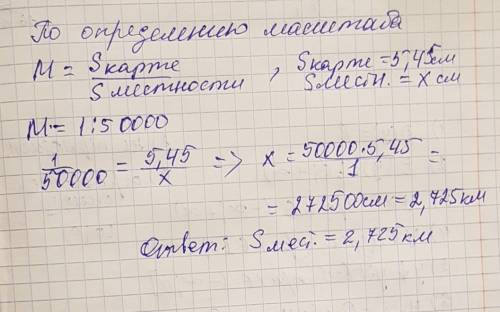 По определению масштаба
М = Sкарте / Sместности , Sкарте = 5,45 см
Sместн. = x см
М = 1:50000
1/50000 = 5,45/x => x = 50000·5,45/1 =
= 272500 см = 2,725 км
Ответ: Sмест. = 2,725 км